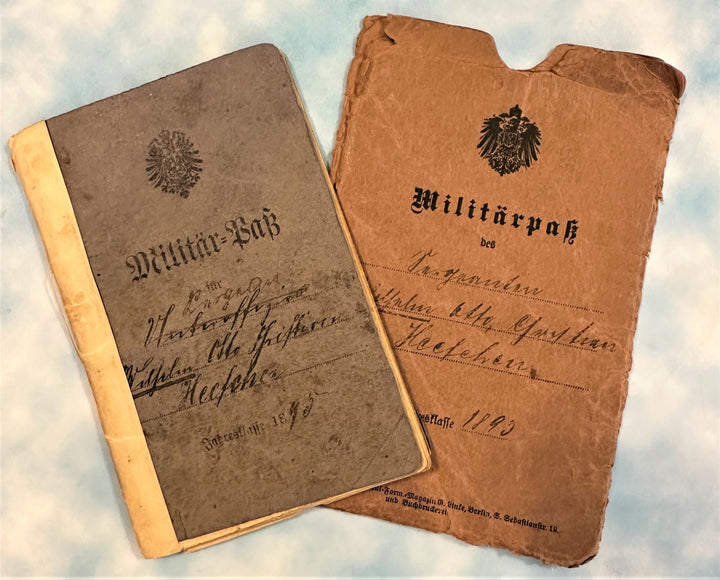 Militär-Paß
für
Unteroffizier
Wilhelm Otto Christian
Heefchen
Jahresklasse 1893
Militärpaß
des
Sergeanten
Otto Christian
Heefchen
klasse 1893
Form.-Magazin Linke, Berlin, S. Sebastianstr. 19.
und Buchdruckerei